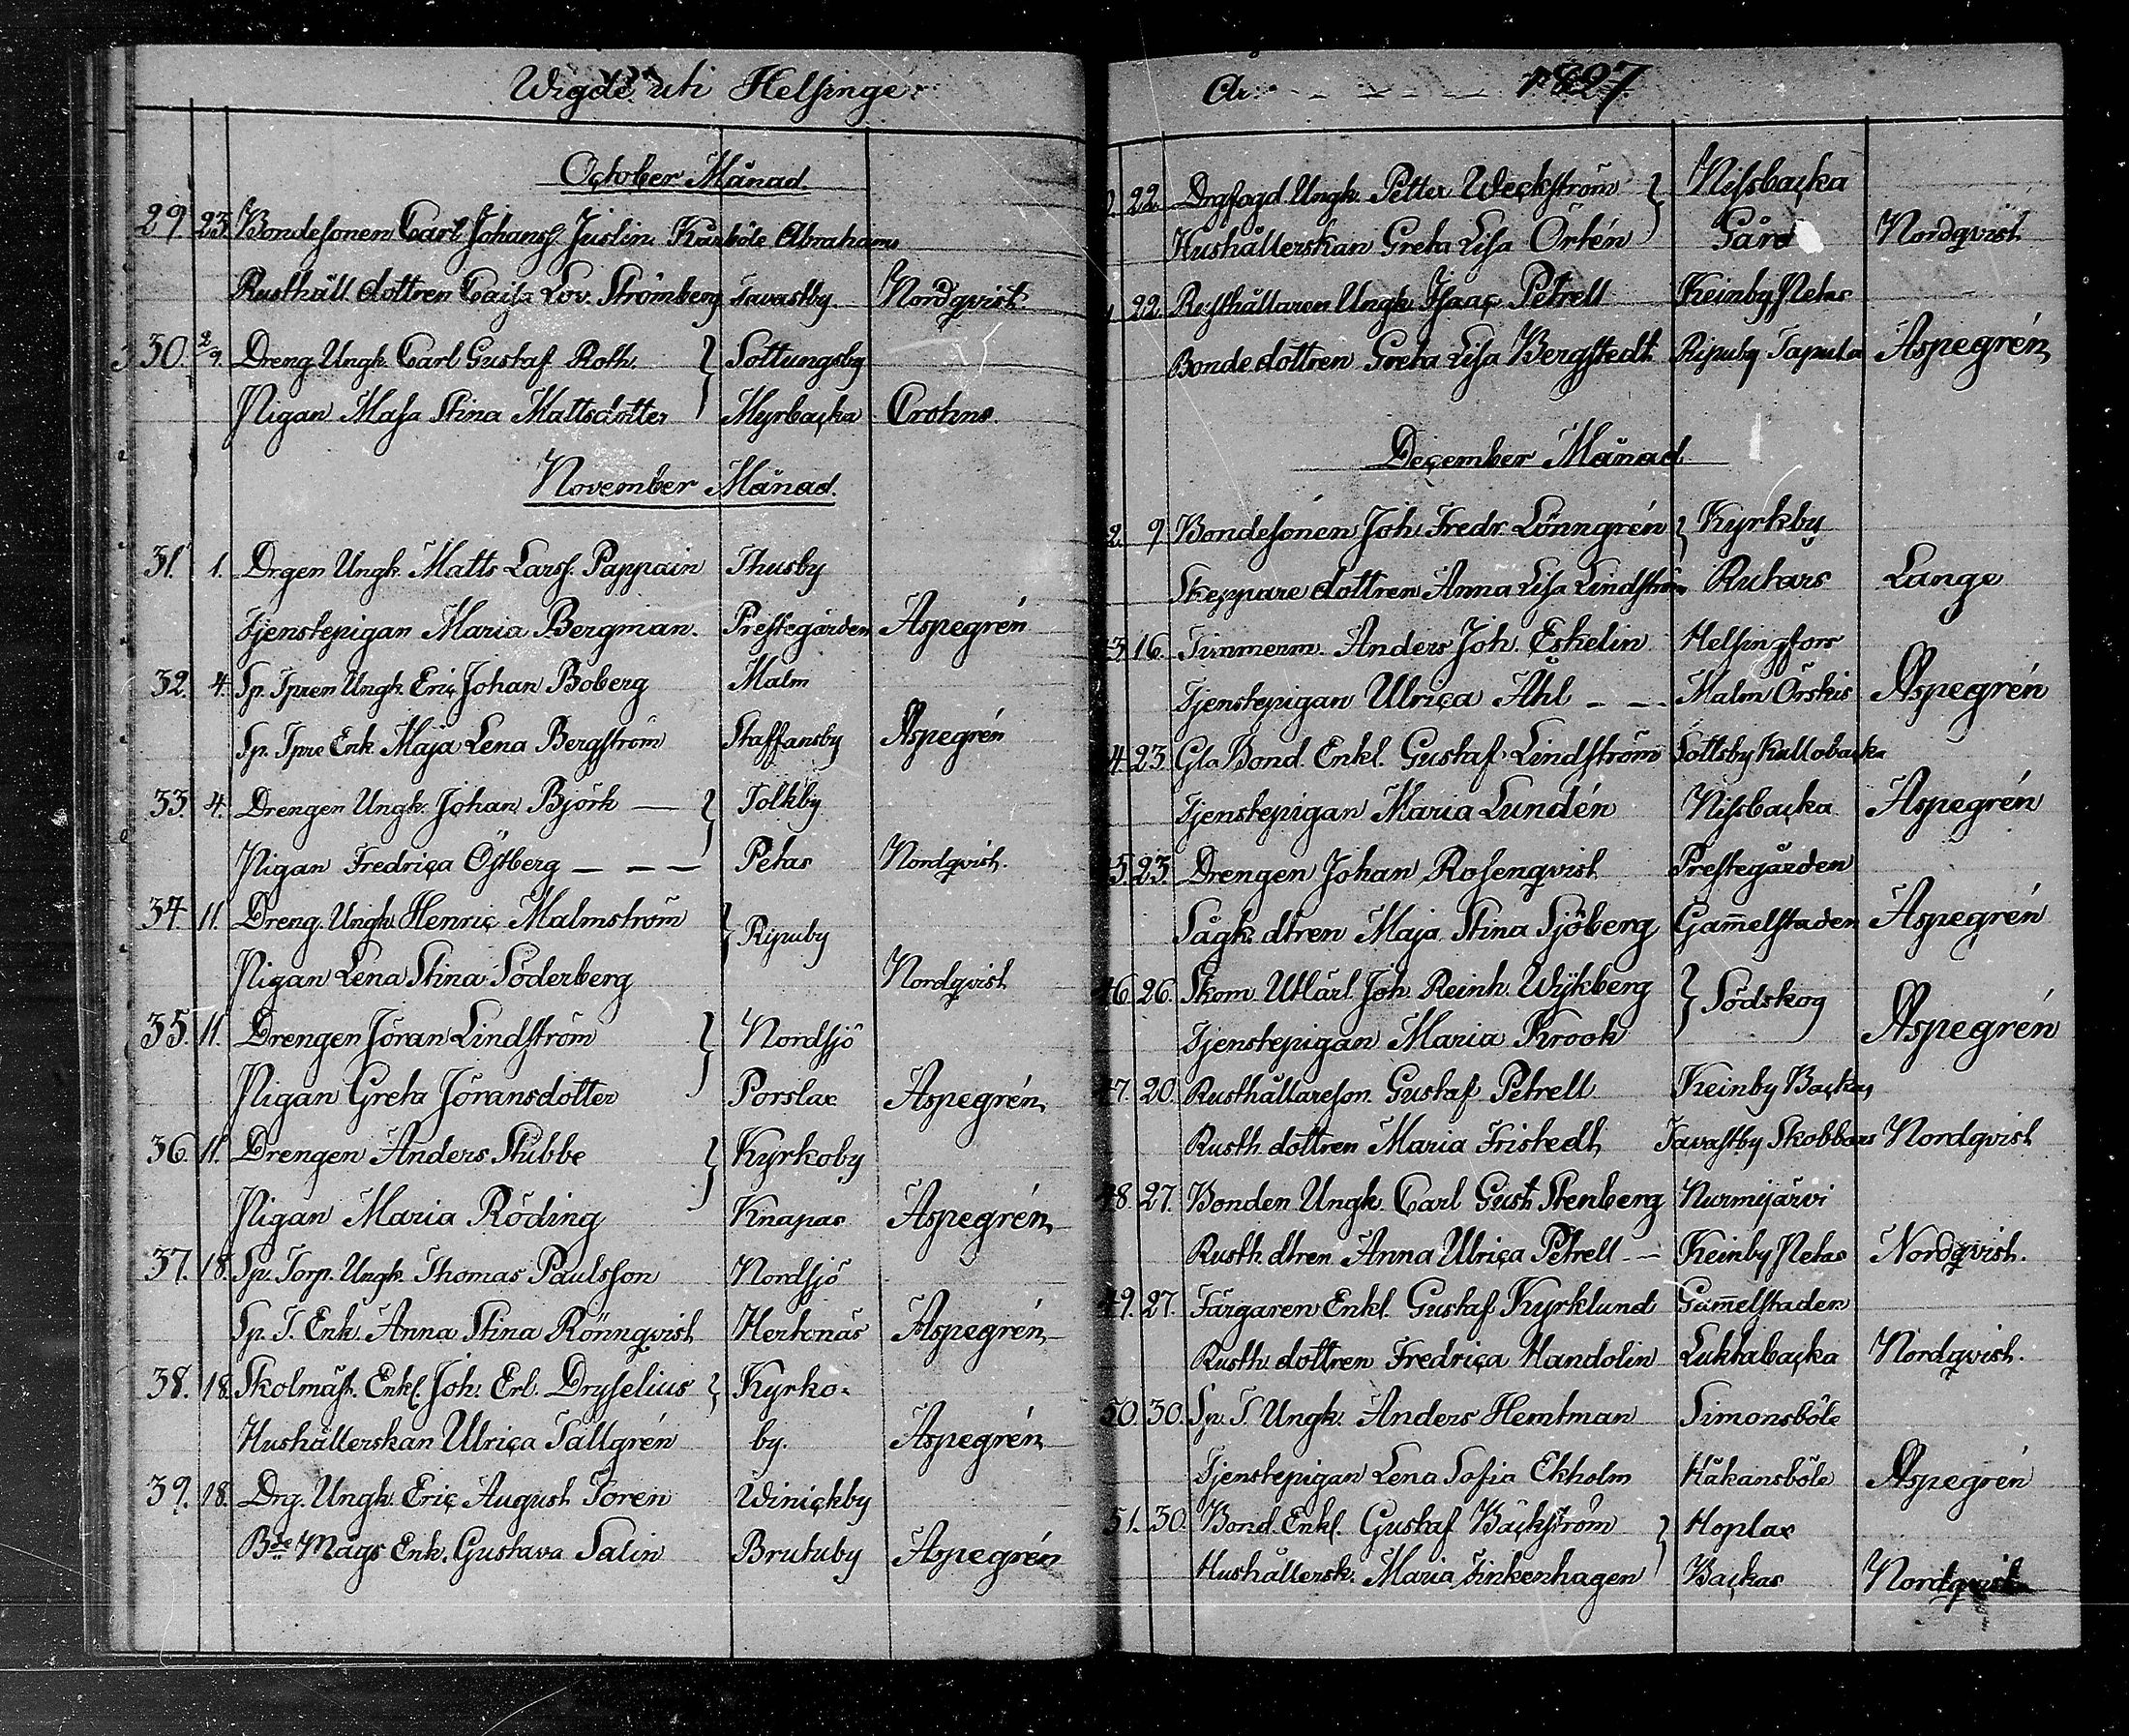 Wigde uti Helsinge
October Månad.
29. 23. Bondesonen Carl Johanss. Juslin Kårböle Abrahams
Rusthåll. dottren Caisa Lov. Strömberg Tavastby. Nordqvist
30. 2/9. Dreng. Ungk. Carl Gustaf Roth. Sottungsby
Pigan Maja Stina Mattsdotter Myrbacka Crohns.
November Månad.
31. 1. Drgen Ungk. Matts Larss. Pappain Thusby
Tjenstepigan Maria Bergman. Prestegården Aspegrén
32. 4. Sp. Tpren Ungk. Eric Johan Boberg Malm
Sp. Tpre Enk. Maja Lena Bergström Staffansby Aspegrén
33. 4. Drengen Ungk. Johan Björk — Tolkby
Pigan Fredrica Östberg — — — Petas Nordqvist.
34. 11. Dreng. Ungk. Henric Malmström Ripuby
Pigan Lena Stina Söderberg Nordqvist
35. 11. Drengen Jöran Lindström Nordsjö
Pigan Greta Jöransdotter Porslax Aspegrén
36. 11. Drengen Anders Stubbe Kyrkoby
Pigan Maria Röding Knapas Aspegrén
37. 18. Sp. Torp. Ungk. Thomas Paulsson Nordsjö
Sp. T. Enk. Anna Stina Rönnqvist Hertonäs Aspegrén
38. 18. Skolmäst. Enkl. Joh. Erl. Dryselius Kyrko-
Hushållerskan Ulrica Tallgrén by. Aspegrén
39. 18. Drg. Ungk. Eric August Toren Winickby
Bde Mågs Enk. Gustava Salin Brutuby Aspegrén
1827
22. Drgfogd. Ungk. Petter Weckström Nissbacka
Hushållerskan Greta Lisa Örtén Gård Nordqvist
22. Rusthållaren Ungk. Isaac Petrell Keinby Petas
Bondedottren Greta Lisa Bergstedt Ripuby Tapula Aspegrén
December Månad
2. 9 Bondesonen Joh. Fredr. Lönngrén Kyrkby
Skeppare dottren Anna Lisa Lindström Rutars Lange
3. 16. Timmerm. Anders Joh. Eskelin Helsingfors
Tjenstepigan Ulrica Åhl — — Malm Örskis Aspegrén
4. 23. Gla Bond. Enkl. Gustaf Lindström Sottsby Kallobacka
Tjenstepigan Maria Lundén Nissbacka Aspegrén
5. 23. Drengen Johan Rosenqvist Prestegården
Sågk. dtren Maja Stina Sjöberg Gam̄elstaden Aspegrén
46. 26. Skom. Utlärl. Joh. Reinh. Wijkberg Södskog
Tjenstepigan Maria Krook Aspegrén
47. 20. Rusthållareson. Gustaf Petrell Keinby Backas
Rusth. dottren Maria Fristedt Tavastby Skobbars Nordqvist
48. 27. Bonden Ungk. Carl Gust. Stenberg Nurmijärvi
Rusth. dtren Anna Ulrica Petrell — Keinby Petas Nordqvist.
49. 27. Färgaren Enkl. Gustaf Kyrklund Gam̄elstaden
Rusth. dottren Fredrica Handolin Luktabacka Nordqvist.
50. 30. Sp. T. Ungk. Anders Hemtman Simonsböle
Tjenstepigan Lena Sofia Ekholm Håkansböle Aspegrén
51. 30. Bond. Enkl. Gustaf Bäckström Hoplax
Hushållersk. Maria Finkenhagen Backas Nordqvist